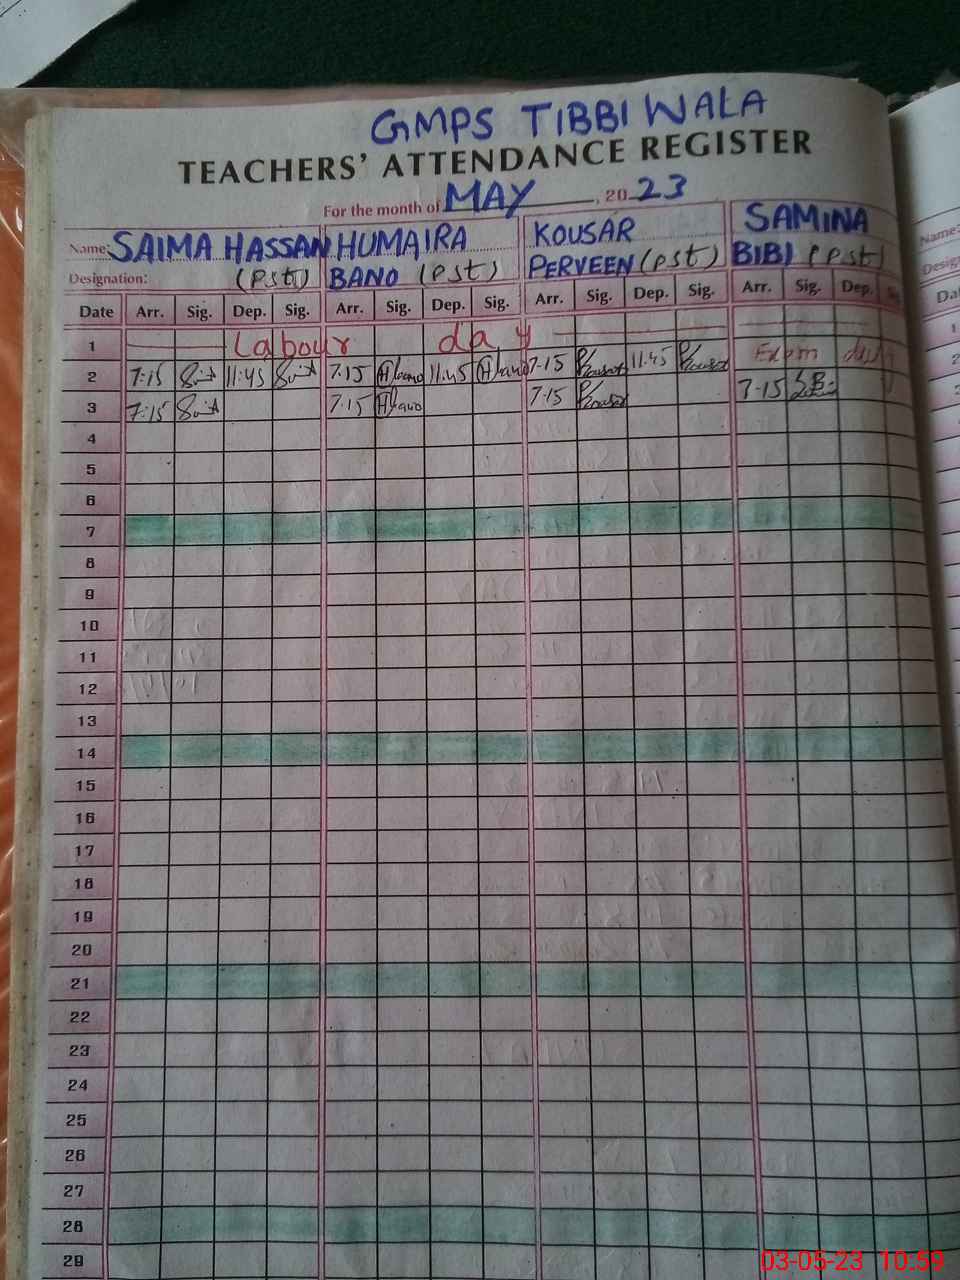 GMPS TIBBI WALA
TEACHERS' ATTENDANCE REGISTER
For the month of MAY, 2023
Name: SAIMA HASSAN HUMAIRA KOUSAR SAMINA
Designation: (Pst) BANO (Pst) PERVEEN (Pst) BIBI (Pst)
Date Arr. Sig. Dep. Sig. Arr. Sig. Dep. Sig. Arr. Sig. Dep. Sig. Arr. Sig. Dep.
1 Labour day
2 7:15 11:45 7.15 11:45 7-15 11:45 Exam duty
3 7:15 7:15 7:15 7-15
4
5
6
7
8
9
10
11
12
13
14
15
16
17
18
19
20
21
22
23
24
25
26
27
28
29
Name:
03-05-23 10:59